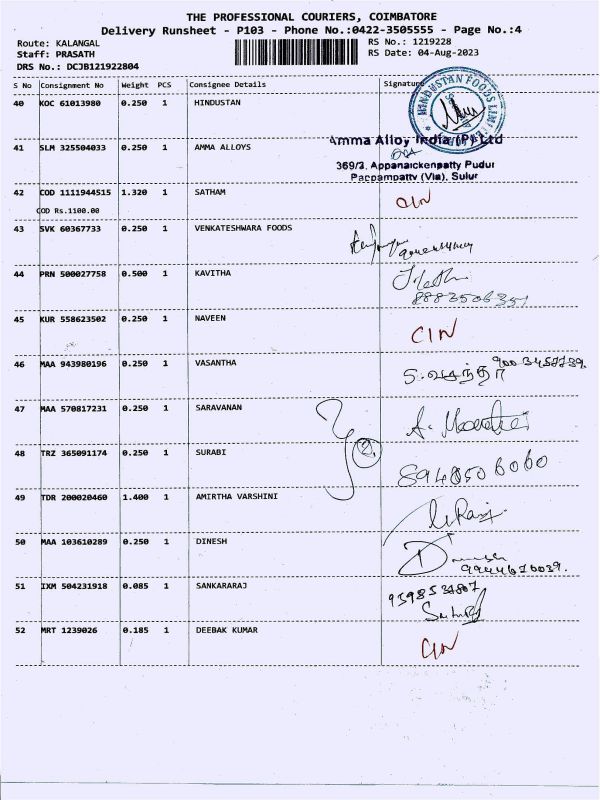 THE PROFESSIONAL COURIERS, COIMBATORE
Delivery Runsheet - P103 - Phone No.:0422-3505555 - Page No.:4
Route: KALANGAL
Staff: PRASATH
DRS No.: DCJB121922804
RS No.: 1219228
RS Date: 04-Aug-2023
S No Consignment No Weight PCS Consignee Details Signature
40 KOC 61013980 0.250 1 HINDUSTAN
HINDUSTAN FOODS LIMITED
41 SLM 325504033 0.250 1 AMMA ALLOYS
Amma Alloy India (P) Ltd
369/3, Appanaickenpatty Pudur
Pappampatty (Via), Sulur
42 COD 1111944515 1.320 1 SATHAM
COD Rs.1100.00
43 SVK 60367733 0.250 1 VENKATESHWARA FOODS
44 PRN 500027758 0.500 1 KAVITHA
8883506351
45 KUR 558623502 0.250 1 NAVEEN CIN
46 MAA 943980196 0.250 1 VASANTHA
S. வசந்தா
47 MAA 570817231 0.250 1 SARAVANAN
48 TRZ 365091174 0.250 1 SURABI
8948506060
49 TDR 200020460 1.400 1 AMIRTHA VARSHINI
50 MAA 103610289 0.250 1 DINESH
9944610039.
51 IXM 504231918 0.085 1 SANKARARAJ
52 MRT 1239026 0.185 1 DEEBAK KUMAR CIN